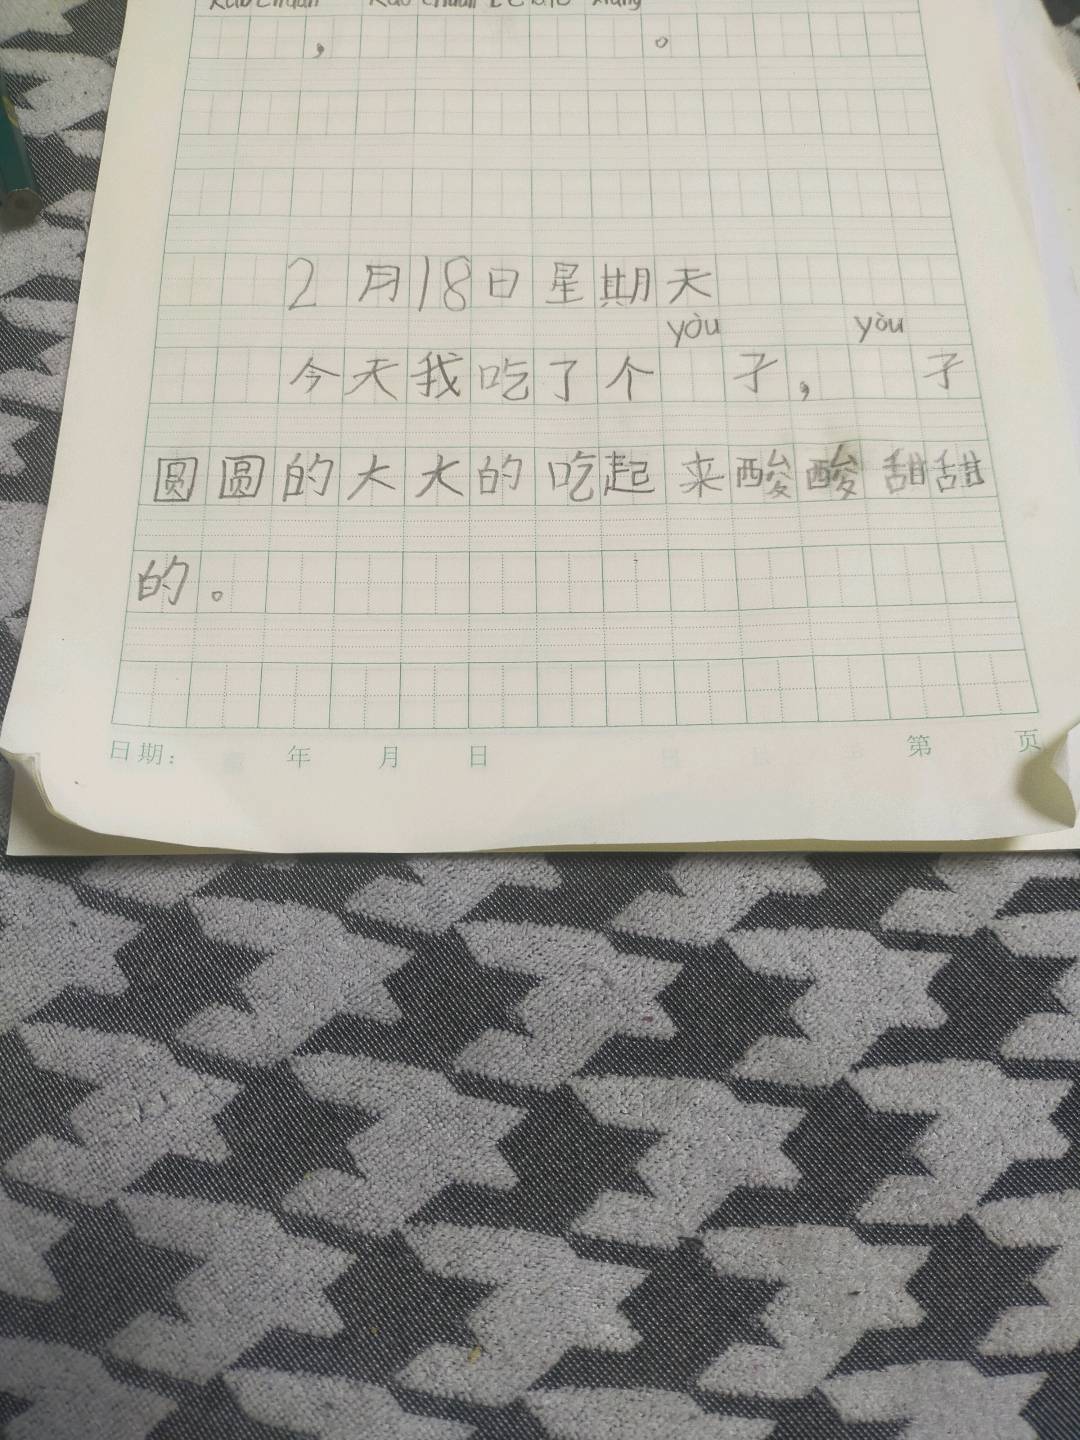 kǎochuàn kǎochuàn
，。
2月18日星期天
yòu yòu
今天我吃了个 子， 子
圆圆的大大的吃起来酸酸甜甜
的。
日期： 年 月 日 第 页